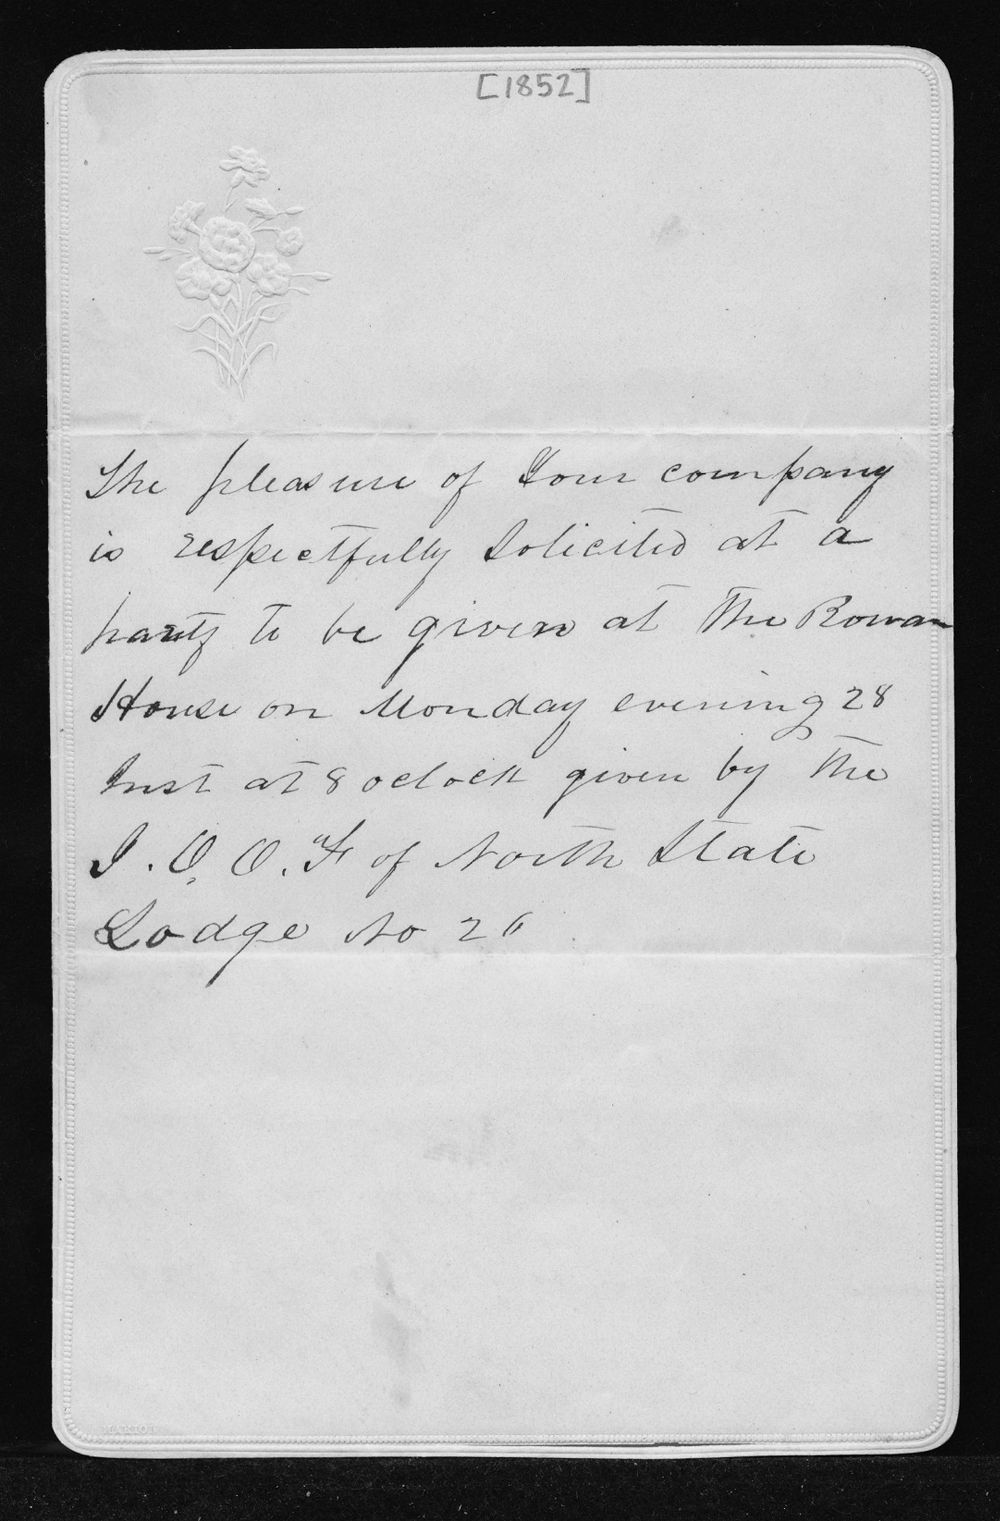 [1852]
The pleasure of Your company
is respectfully Solicited at a
party to be given at The Rowan
House on Monday evening 28
Inst at 8 oclock given by The
I. O. O. F of North State
Lodge No 26
MARION